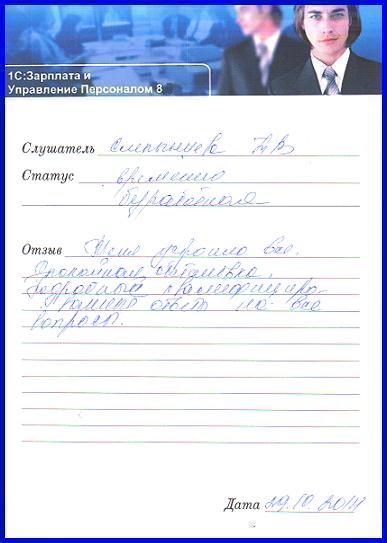 1С:Зарплата и
Управление Персоналом 8
Слушатель
Статус временно
безработная
Отзыв Меня устроило все.
Спокойная обстановка.
Подробный квалифициро-
ванный ответ на все
вопросы.
Дата 29.10.2011